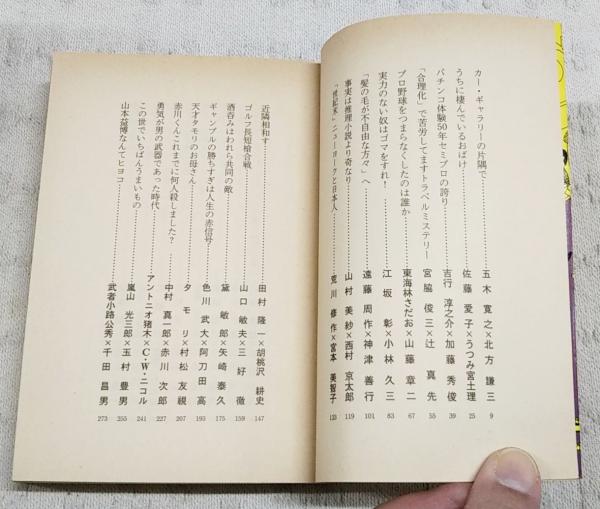 カー・ギャラリーの片隅で……五木寛之×北方謙三 9
うちに棲んでいるおばけ……佐藤愛子×うつみ宮土理 25
パチンコ体験50年セミプロの誇り……吉行淳之介×加藤秀俊 39
「合理化」で苦労してますトラベルミステリー……宮脇俊三×辻真先 55
プロ野球をつまらなくしたのは誰か……東海林さだお×山藤章二 67
実力のない奴はゴマをすれ！……江坂彰×小林久三 83
「髪の毛が不自由な方々」へ……遠藤周作×神津善行 101
事実は推理小説より奇なり……山村美紗×西村京太郎 119
「世紀末」ニューヨークと日本人……荒川修作×宮本美智子 133
近隣相和す……田村隆一×胡桃沢耕史 147
ゴルフ長短槍合戦……山口敏夫×三好徹 159
酒呑みはわれら共同の敵……黛敏郎×矢崎泰久 175
ギャンブルの勝ちすぎは人生の赤信号……色川武大×阿刀田高 193
天才タモリのお母さん……タモリ×村松友視 207
赤川くんこれまでに何人殺しました？……中村真一郎×赤川次郎 227
勇気が男の武器であった時代……アントニオ猪木×C・W・ニコル 241
この世でいちばんうまいもの……嵐山光三郎×玉村豊男 255
山本益博なんてヒヨコ……武者小路公秀×千田昌男 273